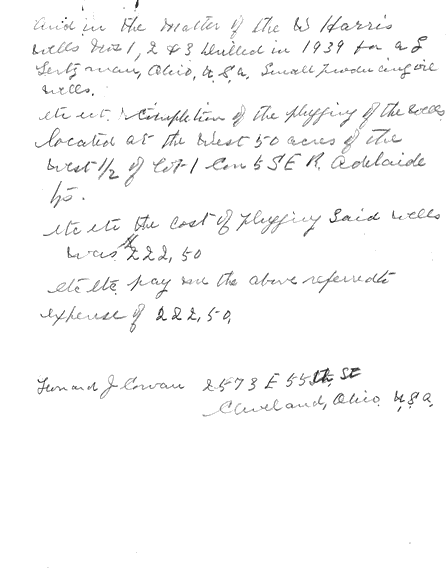 and in the matter of the W Harris
wells Nos 1, 2 & 3 drilled in 1939 for a S
man, Ohio, U.S.a. Small producing oil
wells.
etc etc. completion of the plugging of the wells
located at the West 50 acres of the
West 1/2 of Lot 1 Con 5 S E R. Adelaide
etc etc the cost of plugging Said wells
was $222,50
etc etc. pay me the above referred to
expense of 222,50,
J Cowan 2573 E 55th St
Cleveland, Ohio. U.S.a.